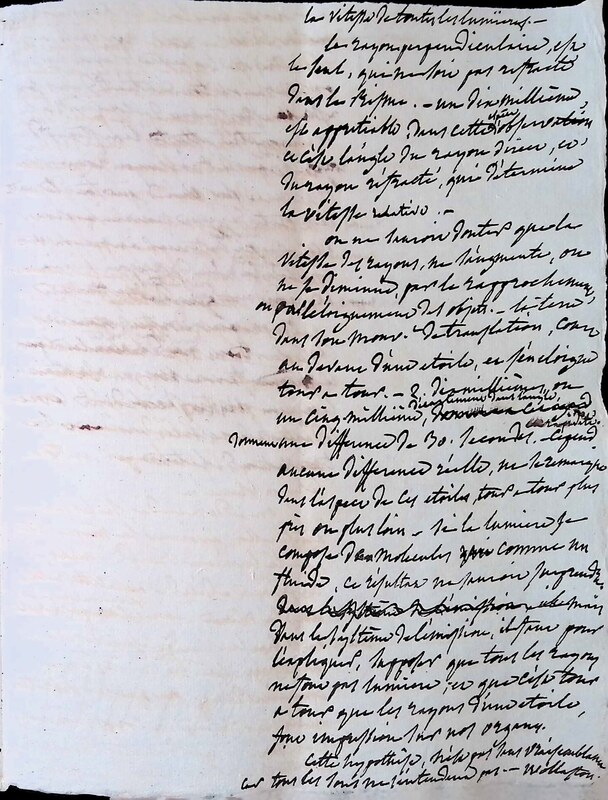 la vitesse de toutes les lumieres. —
le rayon perpendiculaire, est
le seul, qui ne soit pas refracté
dans le Prisme. — un dix millieme,
est appretiable dans cette espèce d'observation
et c'est l'angle du rayon direct, et
du rayon réfracté, qui détermine
la vitesse relative. —
on ne sauroit douter que la
vitesse des rayons, ne s'augmente, ou
ne se diminue, par le rapprochement,
ou par l'éloignement des objets. — la terre
dans son mouv.t de translation, court
au devant d'une etoile, et s'en eloigne
tour a tour. — 2 dix millièmes, ou
un cinq millième, dans l'angle,
donnent une différence de 30. secondes. — Cepend.
aucune différence réelle, ne se remarque
dans l'aspect de ces etoiles, tour a tour plus
près ou plus loin — si la lumiere se
compose de molecules comme un
fluide, ce résultat ne sauroit surprendre
dans le systême de l'émission, mais
dans le systême de l'émission, il faut pour
l'expliquer, supposer que tous les rayons
ne sont pas lumiere, et que c'est tour
a tour que les rayons d'une etoile,
font impression sur nos organes.
Cette hypothèse, n'est pas sans vraisemblance
car tous les sons ne s'entendent pas — Wollaston.